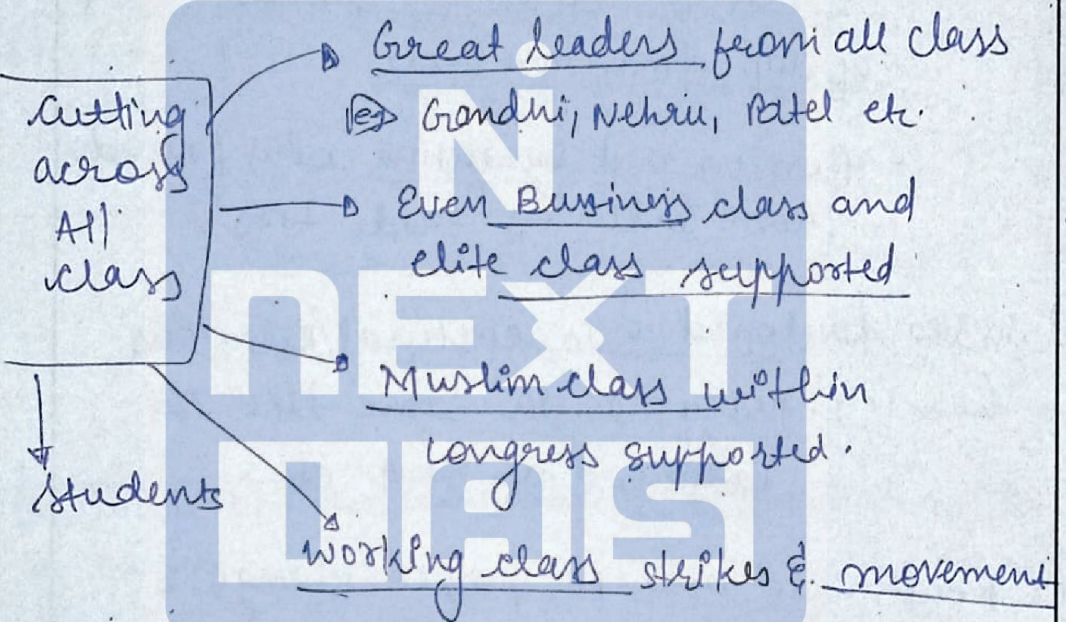 Cutting
across
All
class
Great leaders from all class
eg Gandhi, Nehru, Patel etc.
Even Business class and
elite class supported
Muslim class within
Congress supported.
Students
Working class strikes & movement
NEXT
IAS